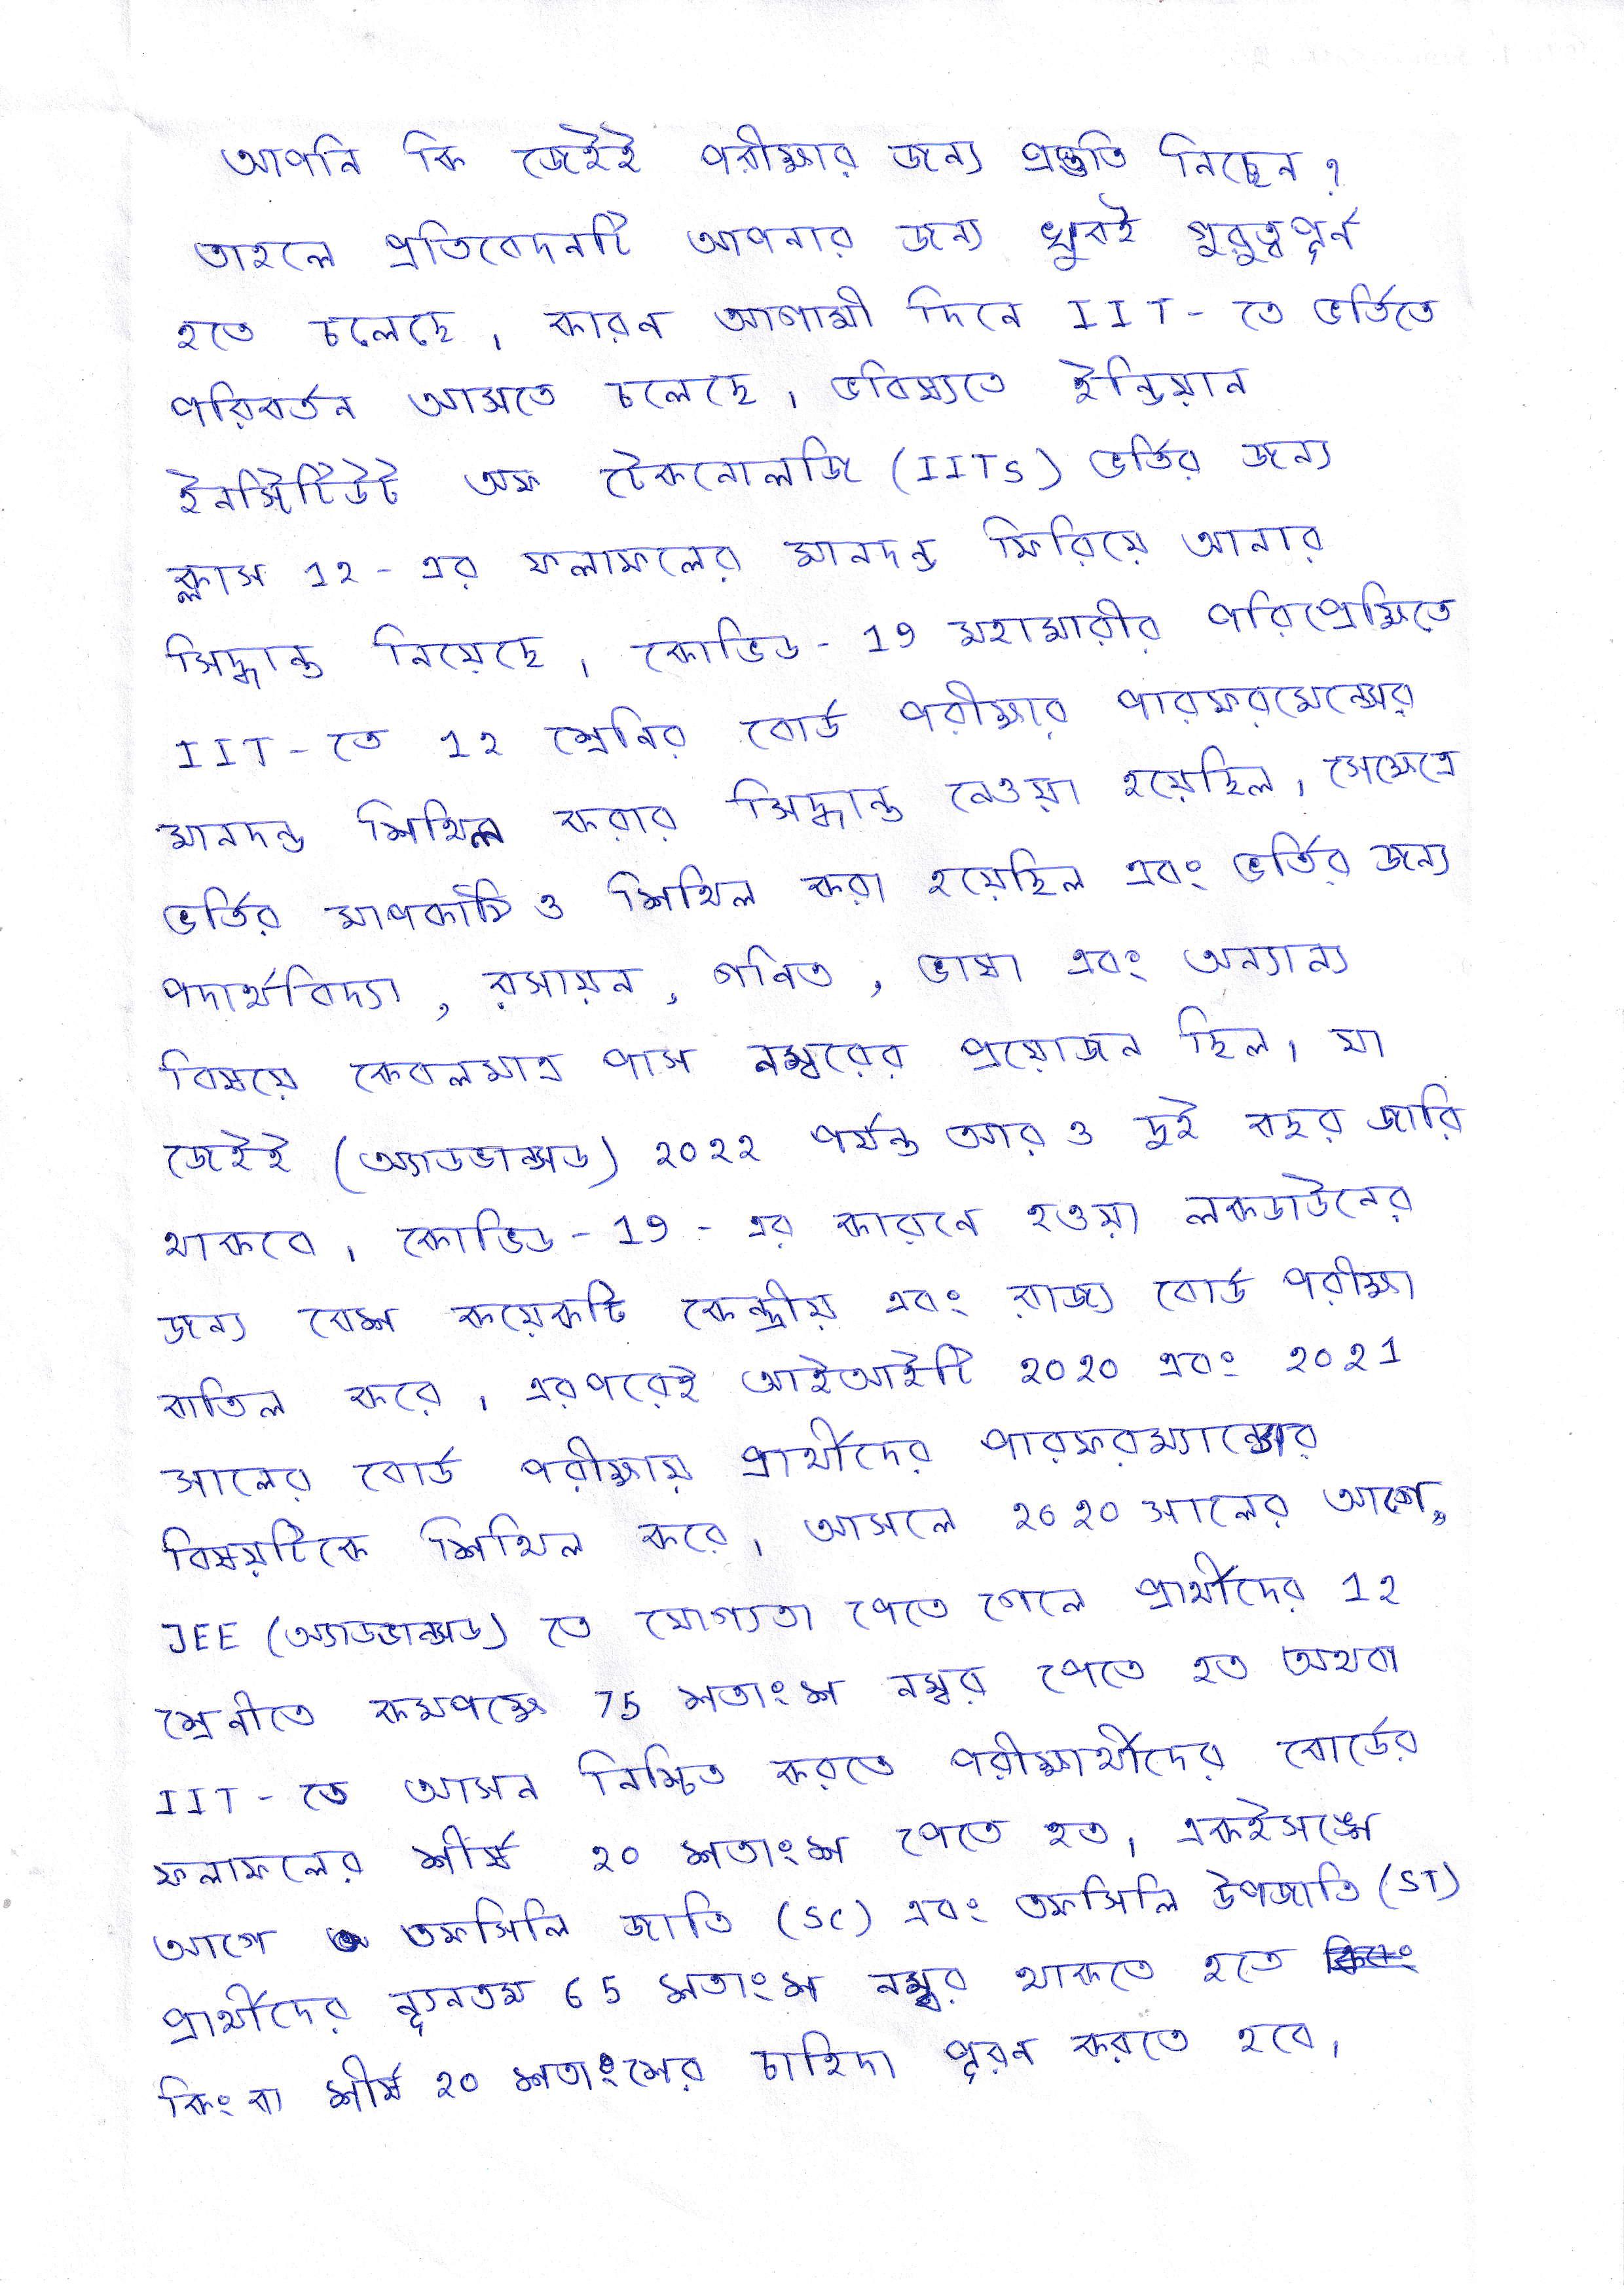 আপনি কি জেইই পরীক্ষার জন্য প্রস্তুতি নিচ্ছেন?
তাহলে প্রতিবেদনটি আপনার জন্য খুবই গুরুত্বপূর্ন
হতে চলেছে, কারন আগামী দিনে IIT- তে ভর্তিতে
পরিবর্তন আসতে চলেছে, ভবিষ্যতে ইন্ডিয়ান
ইনস্টিটিউট অফ টেকনোলজি (IITs) ভর্তির জন্য
ক্লাস ১২-এর ফলাফলের মানদন্ড ফিরিয়ে আনার
সিদ্ধান্ত নিয়েছে, কোভিড-19 মহামারীর পরিপ্রেক্ষিতে
IIT-তে ১২ শ্রেনির বোর্ড পরীক্ষার পারফরমেন্সের
মানদন্ড শিথিল করার সিদ্ধান্ত নেওয়া হয়েছিল, সেক্ষেত্রে
ভর্তির মাপকাঠি ও শিথিল করা হয়েছিল এবং ভর্তির জন্য
পদার্থবিদ্যা, রসায়ন, গনিত, ভাষা এবং অন্যান্য
বিষয়ে কেবলমাত্র পাস নম্বরের প্রয়োজন ছিল, যা
জেইই (অ্যাডভান্সড) ২০২২ পর্যন্ত আর ও দুই বছর জারি
থাকবে, কোভিড-19-এর কারনে হওয়া লকডাউনের
জন্য বেশ কয়েকটি কেন্দ্রীয় এবং রাজ্য বোর্ড পরীক্ষা
বাতিল করে, এরপরেই আইআইটি ২০২০ এবং ২০২1
সালের বোর্ড পরীক্ষায় প্রার্থীদের পারফরম্যান্সের
বিষয়টিকে শিথিল করে, আসলে ২০২০ সালের আগে,
JEE (অ্যাডভান্সড) তে যোগ্যতা পেতে গেলে প্রার্থীদের 1২
শ্রেনীতে কমপক্ষে 75 শতাংশ নম্বর পেতে হত অথবা
IIT-তে আসন নিশ্চিত করতে পরীক্ষার্থীদের বোর্ডের
ফলাফলের শীর্ষ ২০ শতাংশ পেতে হত, একইসঙ্গে
আগে তফসিলি জাতি (SC) এবং তফসিলি উপজাতি (ST)
প্রার্থীদের ন্যূনতম 65 শতাংশ নম্বর থাকতে হতে
কিংবা শীর্ষ ২০ শতাংশের চাহিদা পূরন করতে হবে,